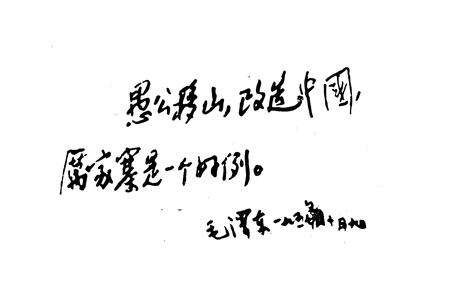 愚公移山,改造中國,
厲家寨是一个好例。
毛澤东 一九五七年十月九日